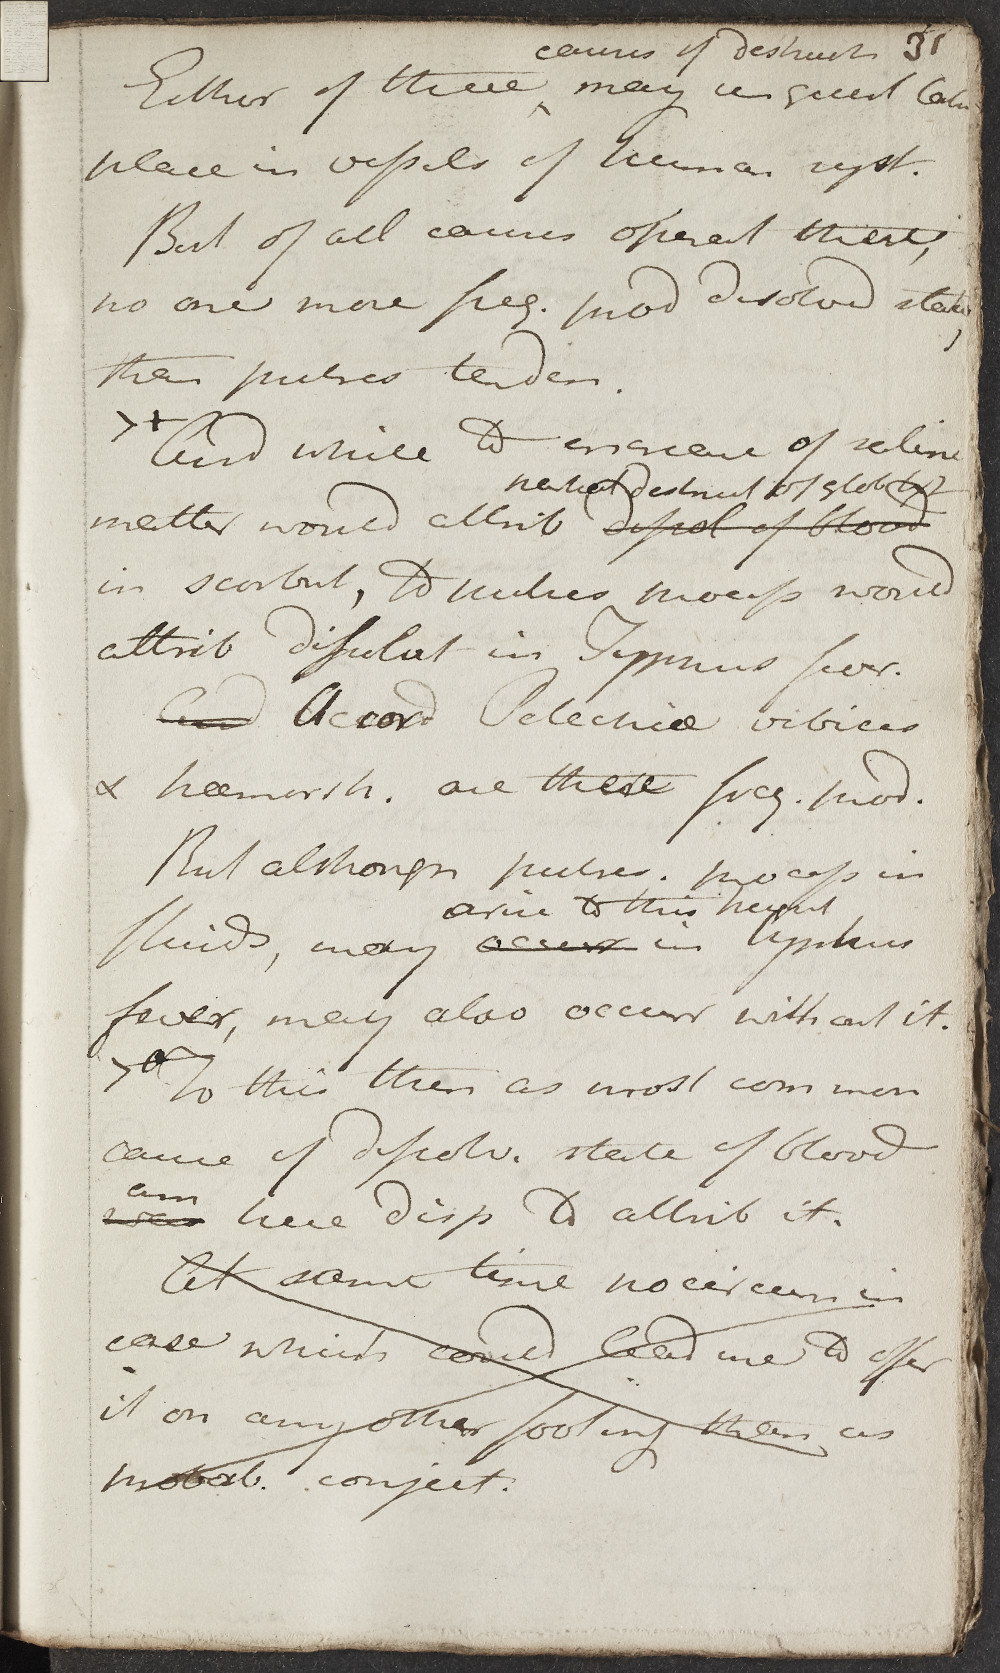 31
causes of destruct
Either of these may in guest take
place in vessels of human syst.
But of all causes operat there,
no one more freq. prod disolved state,
than putres tenden.
And while to increase of saline
destruct of glob
matter would attrib dissol of blood
in scorbut, to putres process would
attrib dissolut in Typhus fever.
And Accord Petechiæ vibices
& hæmorrh. are these freq. prod.
But although putres. process in
arive to this height
fluids, may occur in typhus
fever, may also occurr without it.
To this then as most common
cause of dissolv. state of blood
am
was here disp to attrib it.
At same time no circum in
case which could lead me to offer
it on any other footing than as
probab. conject.